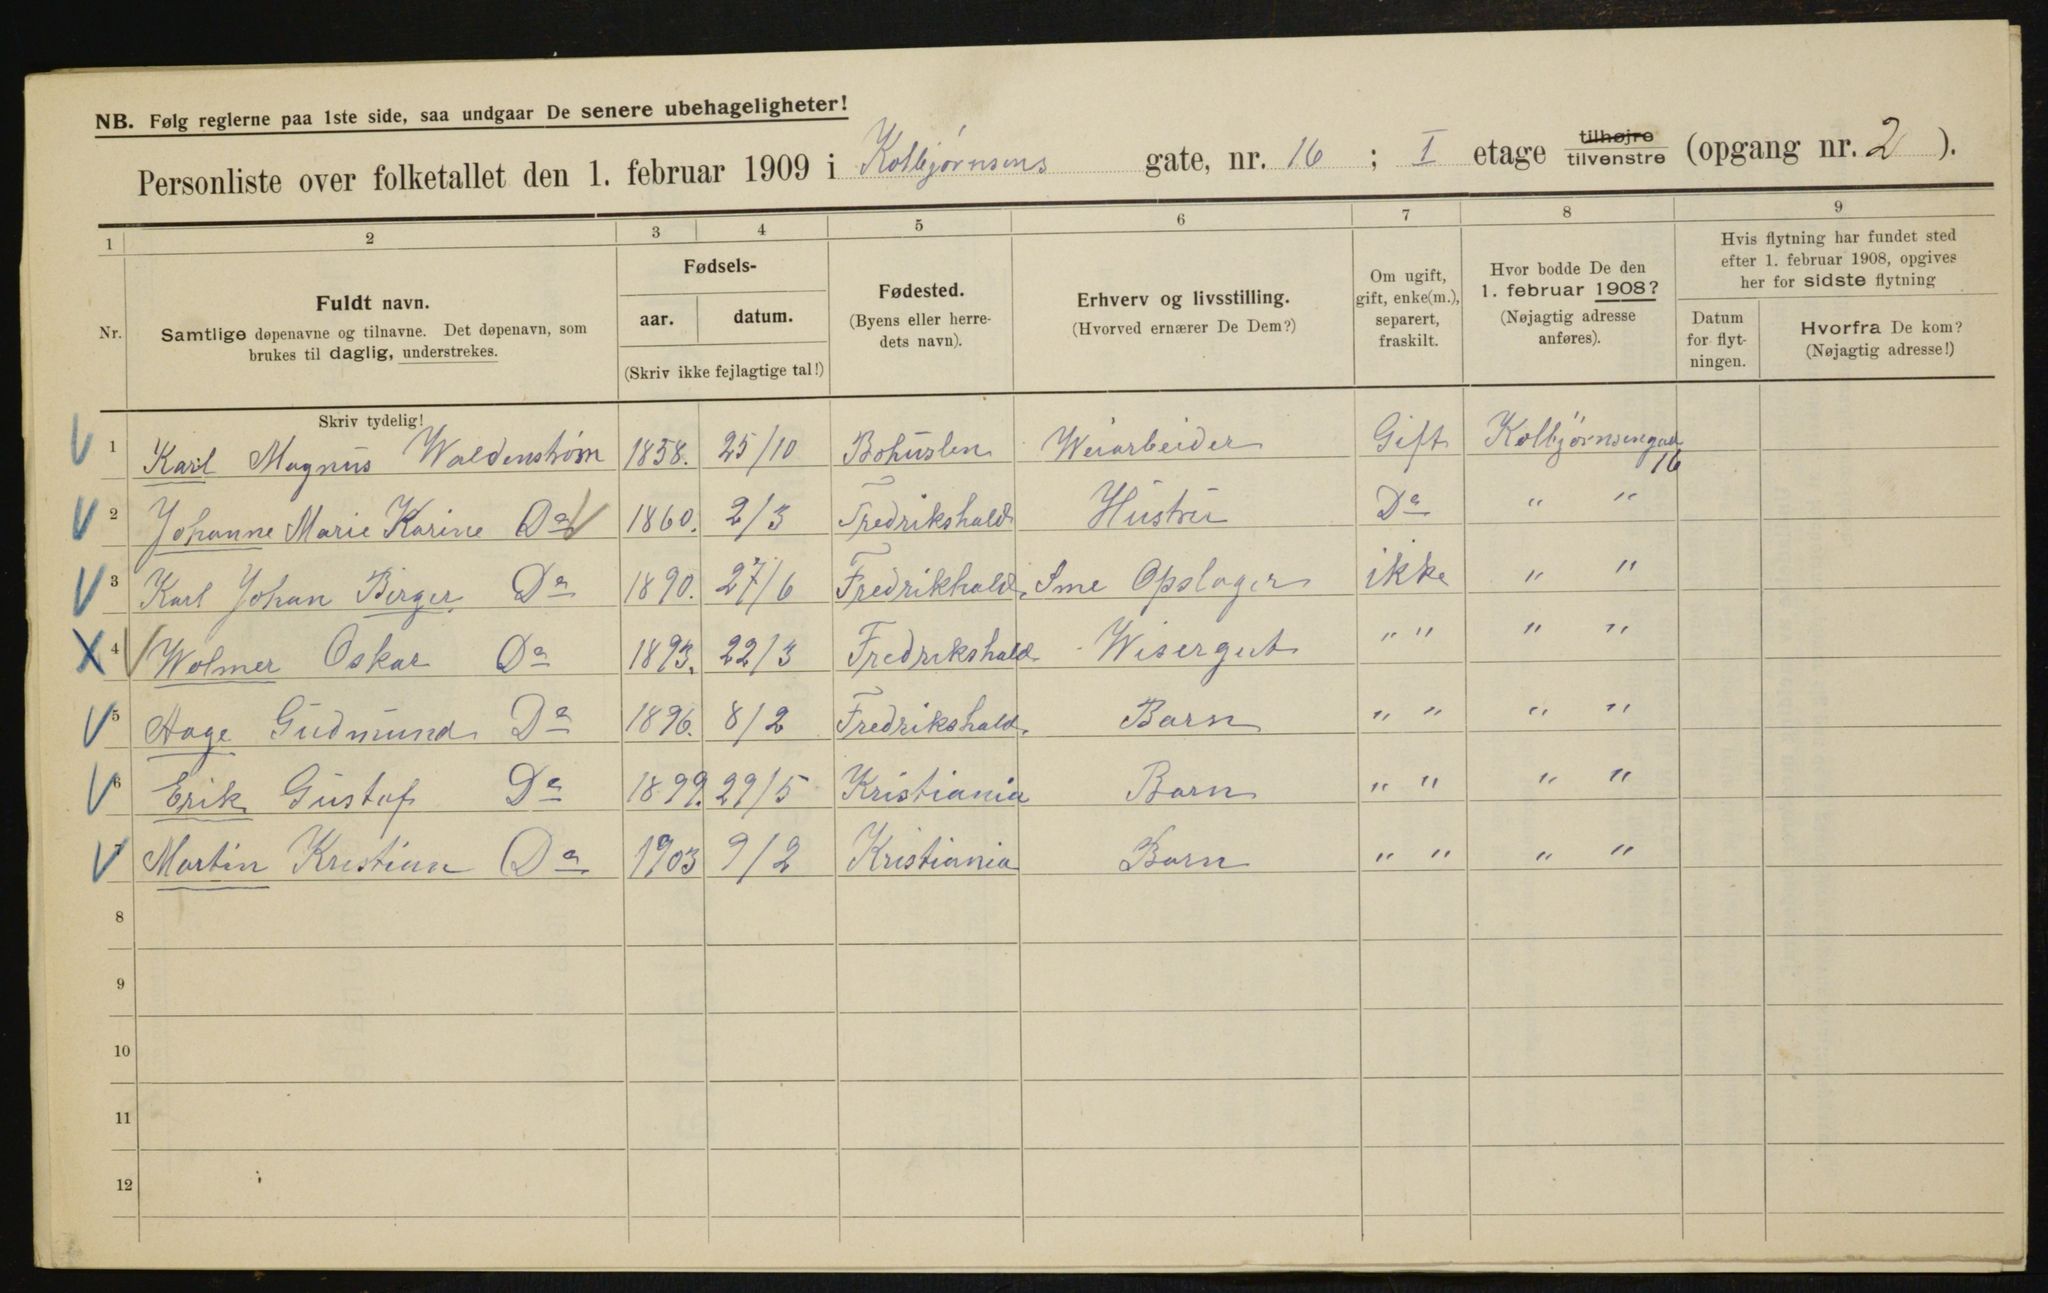 NB. Følg reglerne paa 1ste side, saa undgaar De senere ubehageligheter!
Personliste over folketallet den 1. februar 1909 i Kolbjørnsens gate, nr. 16 ; I etage tilhøjre tilvenstre (opgang nr. 2 ).
1 2 3 4 5 6 7 8 9
Nr.
Fuldt navn.
Samtlige døpenavne og tilnavne. Det døpenavn, som
brukes til daglig, understrekes.
Fødsels-
aar. datum.
(Skriv ikke fejlagtige tal!)
Fødested.
(Byens eller herre-
dets navn).
Erhverv og livsstilling.
(Hvorved ernærer De Dem?)
Om ugift,
gift, enke(m.),
separert,
fraskilt.
Hvor bodde De den
1. februar 1908?
(Nøjagtig adresse
anføres).
Hvis flytning har fundet sted
efter 1. februar 1908, opgives
her for sidste flytning
Datum
for flyt-
ningen.
Hvorfra De kom?
(Nøjagtig adresse!)
Skriv tydelig!
1 Karl Magnus Waldenstrøm 1858. 25/10 Bohuslen Weiarbeider Gift Kolbjørnsengad 16
2 Johanne Marie Karine Do 1860. 2/3 Fredrikshald Hustru Do " "
3 Karl Johan Birger Do 1890. 27/6 Fredrikhald Opslager ikke " "
4 Wolmer Oskar Do 1893. 22/3 Fredrikshald Wisergut " " " "
5 Aage Gudmund Do 1896. 8/2 Fredrikshald Barn " " " "
6 Erik Gustaf Do 1899. 29/5 Kristiania Barn " " " "
7 Martin Kristian Do 1903 9/2 Kristiania Barn " " " "
8
9
10
11
12